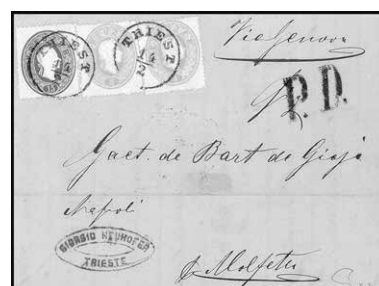 TRIEST
TRIEST
14
2
Via Genova
P.D.
Gaet. de Bart. de Gioja
Napoli
GIORGIO NEUHOFER
TRIESTE
p. Molfetta